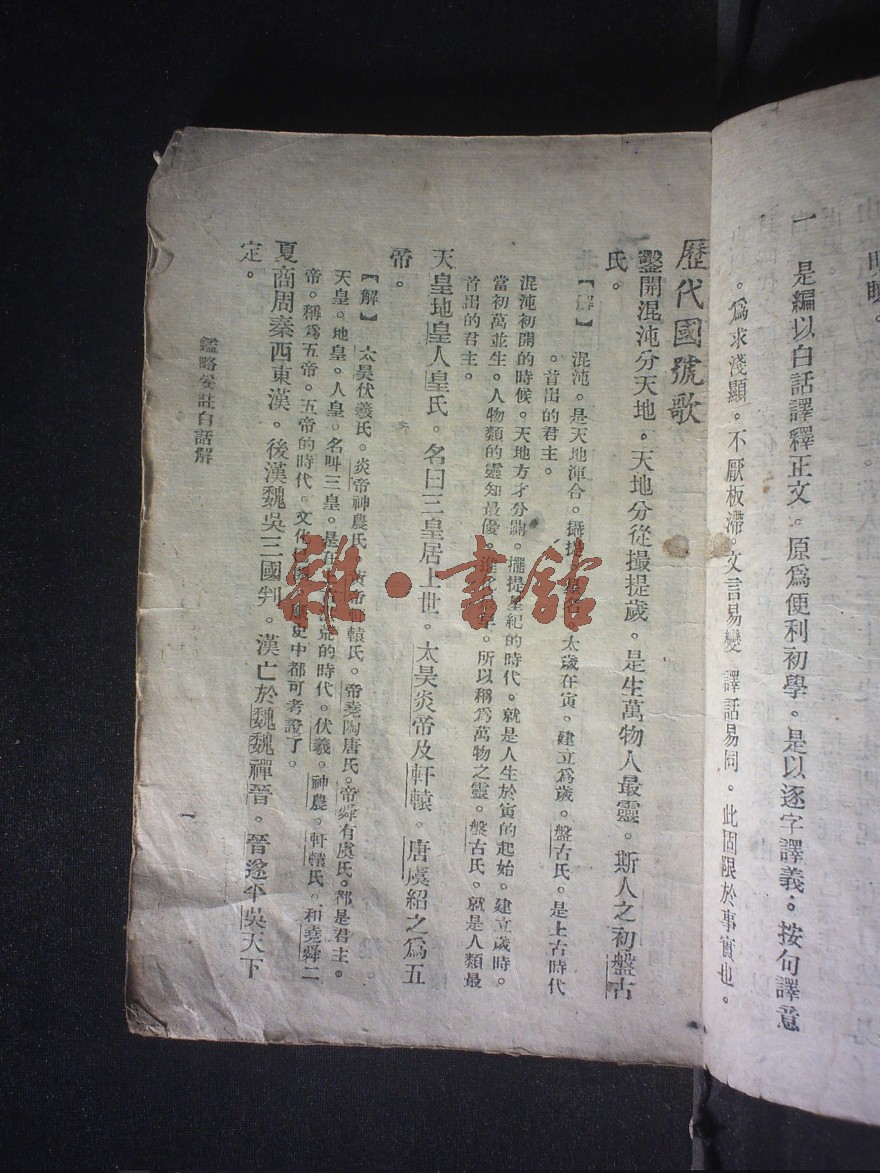 一 是編以白話譯釋正文。原爲便利初學。是以逐字譯義。按句譯意
。爲求淺顯。不厭板滯。文言易變 譯話易同。此固限於事實也。
歷代國號歌
鑿開混沌分天地。天地分從攝提歲。是生萬物人最靈。斯人之初盤古
氏。
【解】 混沌。是天地渾合。攝提 太歲在寅。建立爲歲。盤古氏。是上古時代
。首出的君主。
混沌初開的時候。天地方才分闢。攝提星紀的時代。就是人生於寅的起始。建立歲時。
當初萬並生。人物類的靈知最優。所以稱爲萬物之靈。盤古氏。就是人類最
首出的君主。
天皇地皇人皇氏。名曰三皇居上世。太昊炎帝及軒轅。唐虞紹之爲五
帝。
【解】 太昊伏羲氏。炎帝神農氏。黃帝軒轅氏。帝堯陶唐氏。帝舜有虞氏。都是君主。
天皇。地皇。人皇。名叫三皇。是在 荒的時代。伏羲。神農。軒轅氏。和堯舜二
帝。稱爲五帝。五帝的時代。文化 史中都可考證了。
夏商周秦西東漢。後漢魏吳三國判。漢亡於魏魏禪晉。晉遂平吳天下
定。
鑑略妥註白話解
一
雜·書館